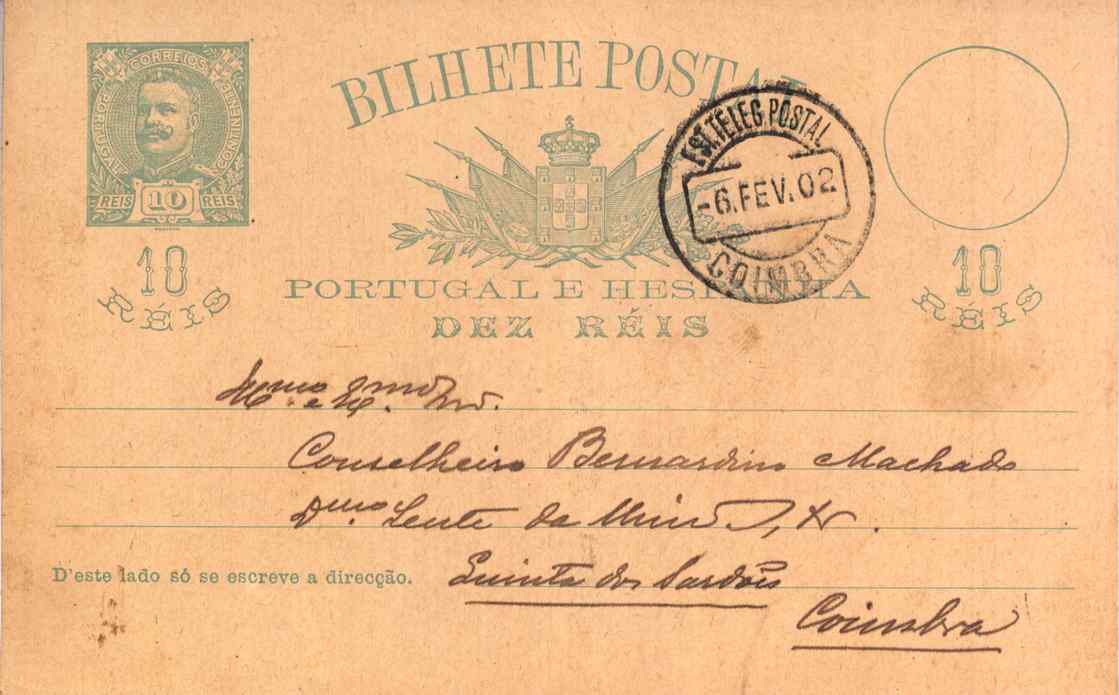 CORREIOS
PORTUGAL
CONTINENTE
REIS 10 REIS
10
RÉIS
BILHETE POSTAL
PORTUGAL E HESPANHA
DEZ RÉIS
EST. TELEG. POSTAL
-6. FEV. 02
COIMBRA
10
RÉIS
Illmo. e Exmo. Snr.
Conselheiro Bernardino Machado
Dmo. Lente da
D'este lado só se escreve a direcção.
Quinta dos Sardões
Coimbra